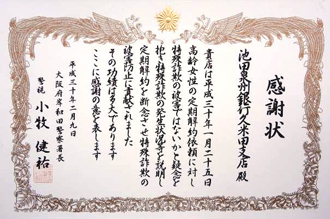 感謝状
池田泉州銀行久米田支店 殿
貴店は平成三十年一月二十五日
高齢女性の定期解約依頼に対し
特殊詐欺の被害ではないかと疑念を
抱き特殊詐欺の発生状況等を説明し
定期解約を断念させ特殊詐欺の
被害防止に貢献されました
その功績は多大であります
ここに感謝の意を表します
平成三十年二月九日
大阪府岸和田警察署長
警視 小牧健祐